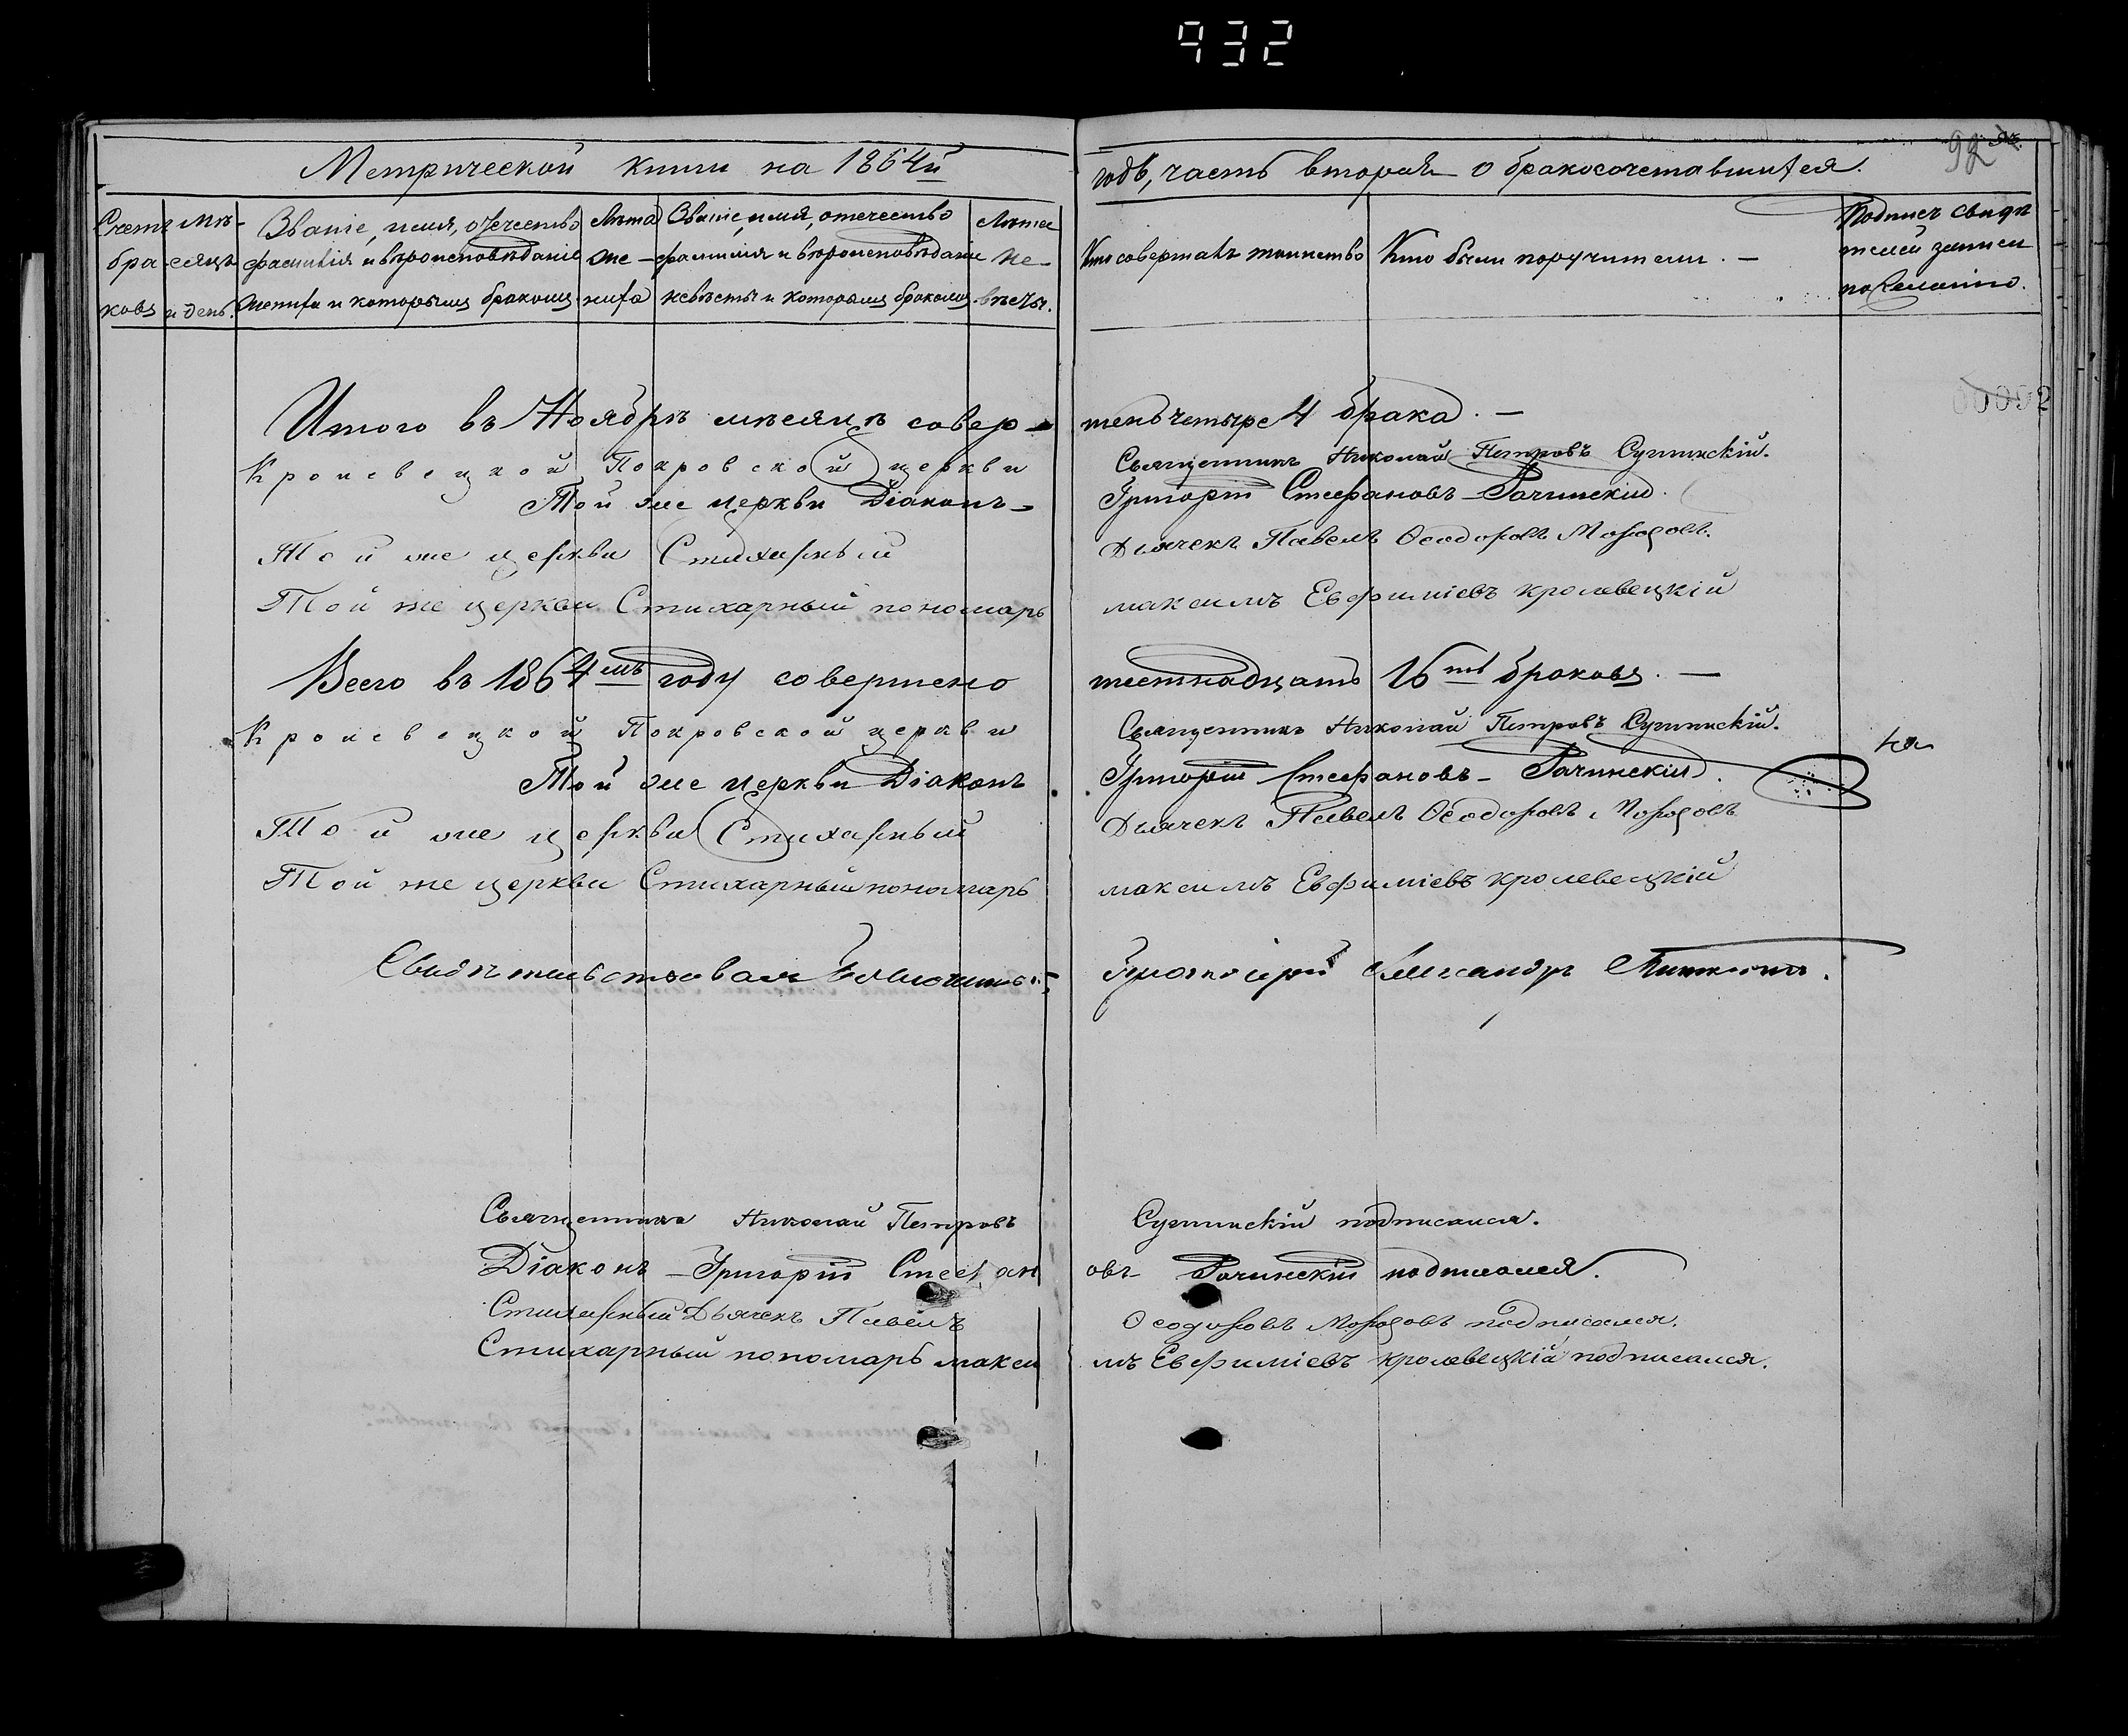 932
92
Метрической книги на 1864й годъ, часть вторая о бракосочетавшихся.
Счетъ браковъ
Мѣсяцъ и день.
Званіе, имя, отчество фамилія и вѣроисповѣданіе жениха и которымъ бракомъ
Лѣта жениха
Званіе, имя, отчество фамилія и вѣроисповѣданіе невѣсты и которымъ бракомъ
Лѣта невѣсты.
Кто совершалъ таинство
Кто были поручители. —
Подпись свидѣтелей записи по желанію.
00092
Итого въ Ноябрѣ мѣсяцѣ совершенъ четыре 4 брака. —
Кролевецкой Покровской церкви Священникъ Николай Петровъ Сулимскій.
Той же церкви Діаконъ — Григорій Стефановъ — Рачинскій.
Той же церкви Стихарный Дьячекъ Павелъ Ѳеодоровъ Морозовъ.
Той же церкви Стихарный пономарь максимъ Евфиміевъ кролевецкій
Всего въ 1864мъ году совершено шестнадцать 16ть браковъ. —
Кролевецкой Покровской церкви Священникъ Николай Петровъ Сулимскій.
Той же церкви Діаконъ Григорій Стефановъ — Рачинскій.
Той же церкви Стихарный Дьячекъ Павелъ Ѳеодоровъ Морозовъ
Той же церкви Стихарный пономарь максимъ Евфиміевъ кролевецкій
Свидѣтельствовалъ Благочинный Протоіерей Александръ
Священникъ Николай Петровъ Сулимскій подписался.
Діаконъ — Григорій Стефановъ — Рачинскій подписался.
Стихарный Дьячекъ Павелъ Ѳеодоровъ Морозовъ подписался.
Стихарный пономарь максимъ Евфиміевъ кролевецкій подписался.